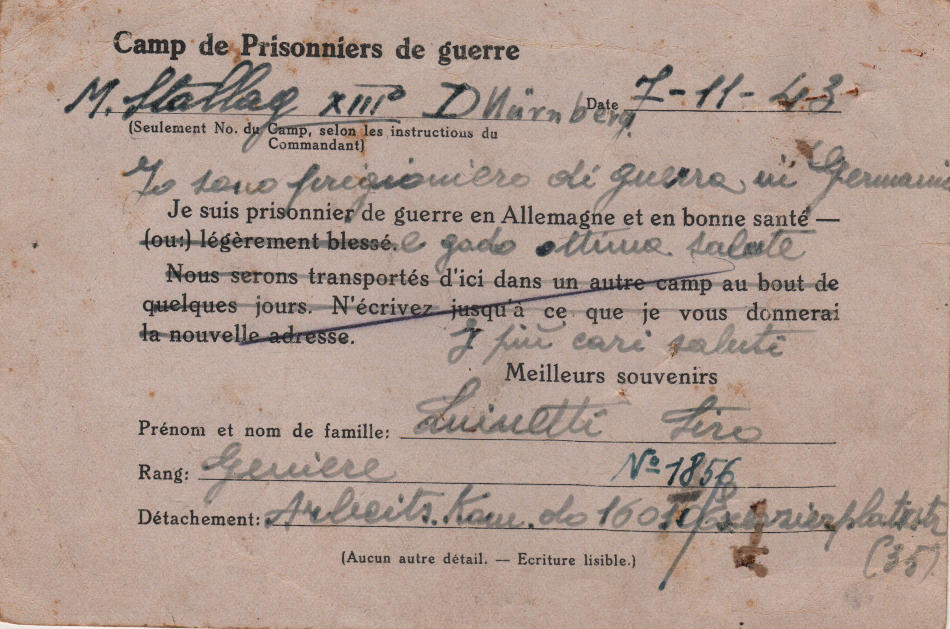 Camp de Prisonniers de guerre
M. Stallag XIIIº D Nürnberg Date 7-11-43
(Seulement No. du Camp, selon les instructions du
Commandant)
Io sono prigioniero di guerra in Germania
Je suis prisonnier de guerre en Allemagne et en bonne santé —
(ou:) légèrement blessé. e gado ottima salute
Nous serons transportés d'ici dans un autre camp au bout de
quelques jours. N'écrivez jusqu'à ce que je vous donnerai
la nouvelle adresse. I più cari saluti
Meilleurs souvenirs
Prénom et nom de famille: Luinetti Siro
Rang: Geniere Nº 1856
Détachement: Arbeits. Kom. do 160
(35)
(Aucun autre détail. — Ecriture lisible.)